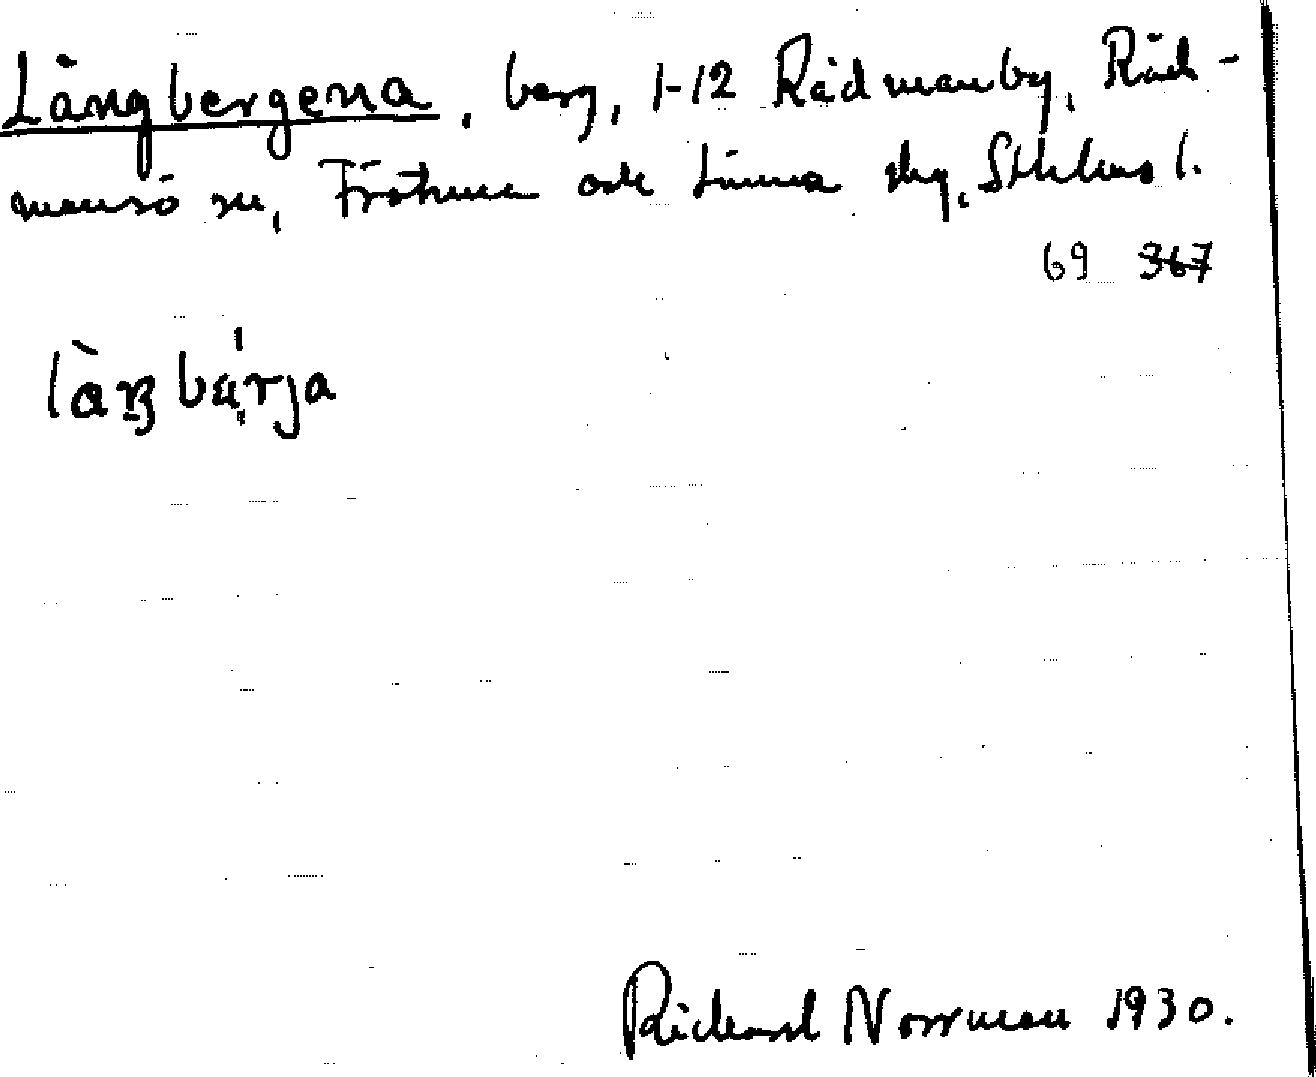 Långbergena, berg, 1-12 Rådmanby, Råd-
mansö sn, Frötuna och Länna skg, Sthlms l.
69 367
làŋbärja
Rickard Norrman 1930.